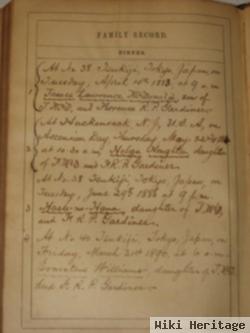 FAMILY RECORD.
BIRTHS.
At No 38 Tsukiji, Tokyo, Japan, on
Tuesday, April 10th 1883, at 9 a.m.
1 James Lawrence McDonald, son of
J. McD. and Florence R. P. Gardiner.
At Hackensack N. J., U. S. A, on
Ascension Day Thursday May
2 at 10.30 a.m. Helga daughter
of J. McD. and F. R. P. Gardiner.
At No. 38 Tsukiji, Tokyo, Japan, on
Tuesday, June 29th 1888 at 9 p.m.
3 Hasu-no-Hana, daughter of J. McD.
and F. R. P. Gardiner.
4 At No 40 Tsukiji, Tokyo, Japan, on
Friday, March 21st 1890, at 10 a.m.
Williams, daughter of J. McD.
and F. R. P. Gardiner.
Wiki Heritage